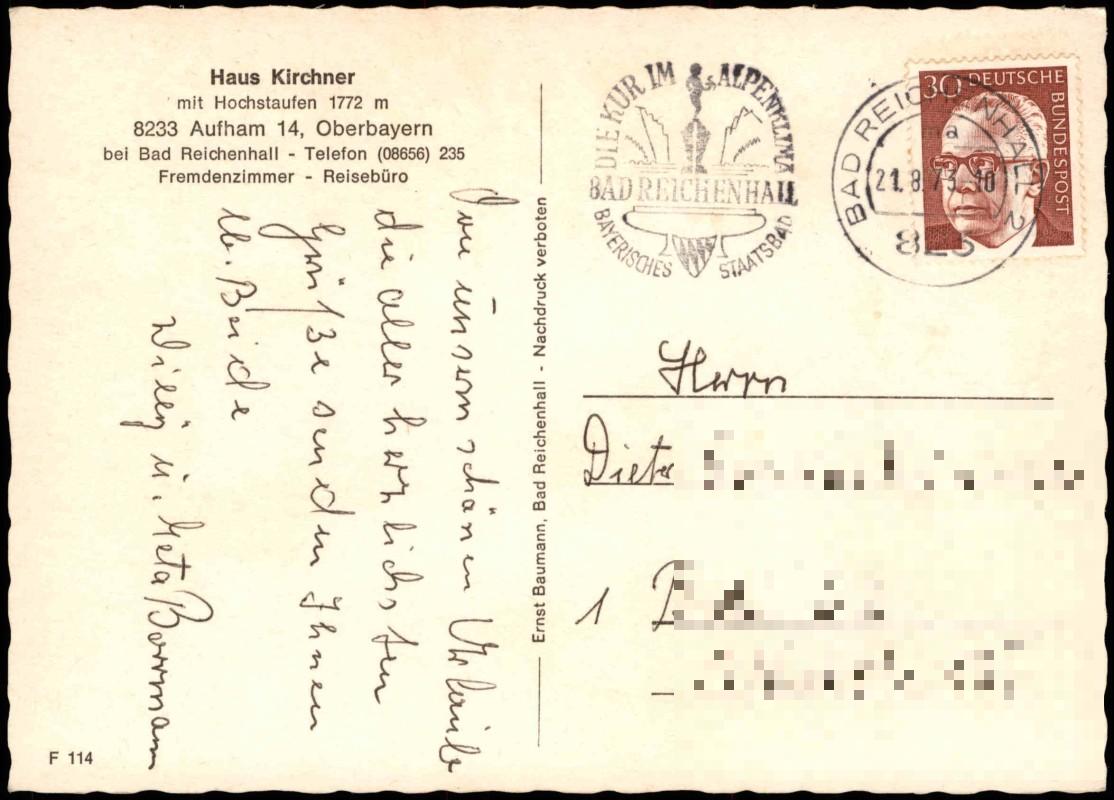 Haus Kirchner
mit Hochstaufen 1772 m
8233 Aufham 14, Oberbayern
bei Bad Reichenhall - Telefon (08656) 235
Fremdenzimmer - Reisebüro
Von unserm schönen Urlaub
die aller herzlichsten
Grüße senden Ihnen
lb. Beide
Willy u. Meta Borrmann
F 114
Ernst Baumann, Bad Reichenhall - Nachdruck verboten
DIE KUR IM ALPENKLIMA
BAD REICHENHALL
BAYERISCHES STAATSBAD
BAD REICHENHALL 2
ma
21.8.73.10
823
30 DEUTSCHE
BUNDESPOST
Herrn
Dieter
1